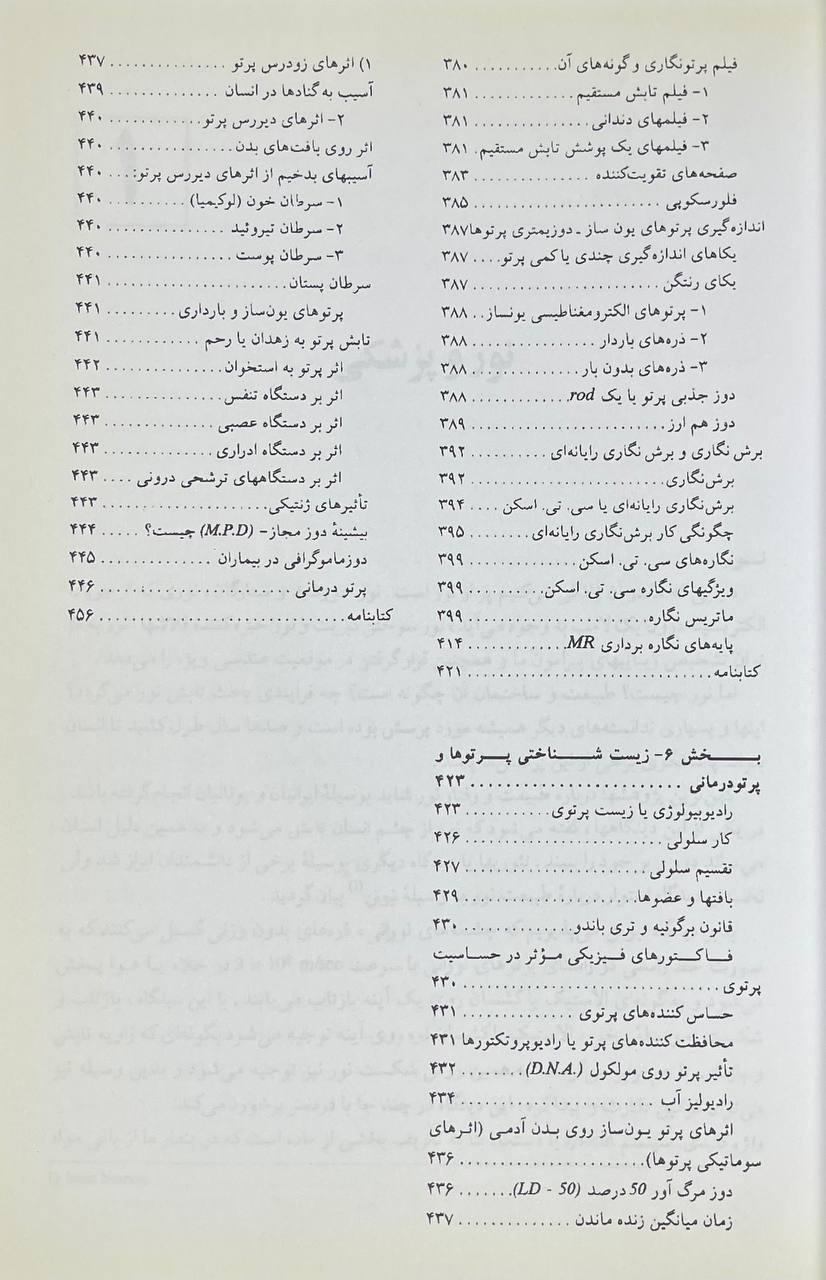 فیلم پرتونگاری و گونه‌های آن........... ۳۸۰
۱- فیلم تابش مستقیم.............. ۳۸۱
۲- فیلمهای دندانی................ ۳۸۱
۳- فیلمهای یک پوشش تابش مستقیم. ۳۸۱
صفحه‌های تقویت‌کننده ............... ۳۸۳
فلورسکوپی ........................ ۳۸۵
اندازه‌گیری پرتوهای یون ساز ـ دوزیمتری پرتوها ۳۸۷
یکاهای اندازه‌گیری چندی یا کمی پرتو.... ۳۸۷
یکای رنتگن ........................ ۳۸۷
۱- پرتوهای الکترومغناطیسی یونساز.. ۳۸۸
۲- ذره‌های باردار ................. ۳۸۸
۳- ذره‌های بدون بار............... ۳۸۸
دوز جذبی پرتو یا یک rod............. ۳۸۸
دوز هم ارز......................... ۳۸۹
برش نگاری و برش نگاری رایانه‌ای .......... ۳۹۲
برش‌نگاری......................... ۳۹۲
برش‌نگاری رایانه‌ای یا سی. تی. اسکن .... ۳۹۴
چگونگی کار برش‌نگاری رایانه‌ای ........ ۳۹۵
نگاره‌های سی. تی. اسکن.............. ۳۹۹
ویژگیهای نگاره سی. تی. اسکن.......... ۳۹۹
ماتریس نگاره....................... ۳۹۹
پایه‌های نگاره برداری MR............. ۴۱۴
کتابنامه............................... ۴۲۱
بـــخش ۶- زیست شـــناختی پـــرتوها و
پرتودرمانی ........................ ۴۲۳
رادیوبیولوژی یا زیست پرتوی ........... ۴۲۳
کار سلولی ........................ ۴۲۶
تقسیم سلولی ...................... ۴۲۷
بافتها و عضوها...................... ۴۲۹
قانون برگونیه و تری باندو............. ۴۳۰
فـــاکـــتورهای فـــیزیکی مـؤثر در حسـاسیت
پرتوی.............................. ۴۳۰
حساس کننده‌های پرتوی .............. ۴۳۱
محافظت کننده‌های پرتو یا رادیوپروتکتورها ۴۳۱
تأثیر پرتو روی مولکول (D.N.A.)........ ۴۳۲
رادیولیز آب ....................... ۴۳۴
اثرهای پرتو یـون‌ساز روی بـدن آدمـی (اثـرهای
سوماتیکی پرتوها)..................... ۴۳۶
دوز مرگ آور 50 درصد (LD - 50)....... ۴۳۶
زمان میانگین زنده ماندن .............. ۴۳۷
۱) اثرهای زودرس پرتو .............. ۴۳۷
آسیب به گنادها در انسان .............. ۴۳۹
۲- اثرهای دیررس پرتو............. ۴۴۰
اثر روی بافت‌های بدن................. ۴۴۰
آسیبهای بدخیم از اثرهای دیررس پرتو:... ۴۴۰
۱- سرطان خون (لوکیمیا) .......... ۴۴۰
۲- سرطان تیروئید ................ ۴۴۰
۳- سرطان پوست ................ ۴۴۰
سرطان پستان....................... ۴۴۱
پرتوهای یون‌ساز و بارداری .......... ۴۴۱
تابش پرتو به زهدان یا رحم ............ ۴۴۱
اثر پرتو به استخوان................ ۴۴۲
اثر بر دستگاه تنفس................ ۴۴۳
اثر بر دستگاه عصبی ............... ۴۴۳
اثر بر دستگاه ادراری .............. ۴۴۳
اثر بر دستگاههای ترشحی درونی .... ۴۴۳
تأثیرهای ژنتیکی..................... ۴۴۳
بیشینهٔ دوز مجاز- (M.P.D) چیست؟ ..... ۴۴۴
دوزماموگرافی در بیماران .............. ۴۴۵
پرتو درمانی ........................ ۴۴۶
کتابنامه............................... ۴۵۶